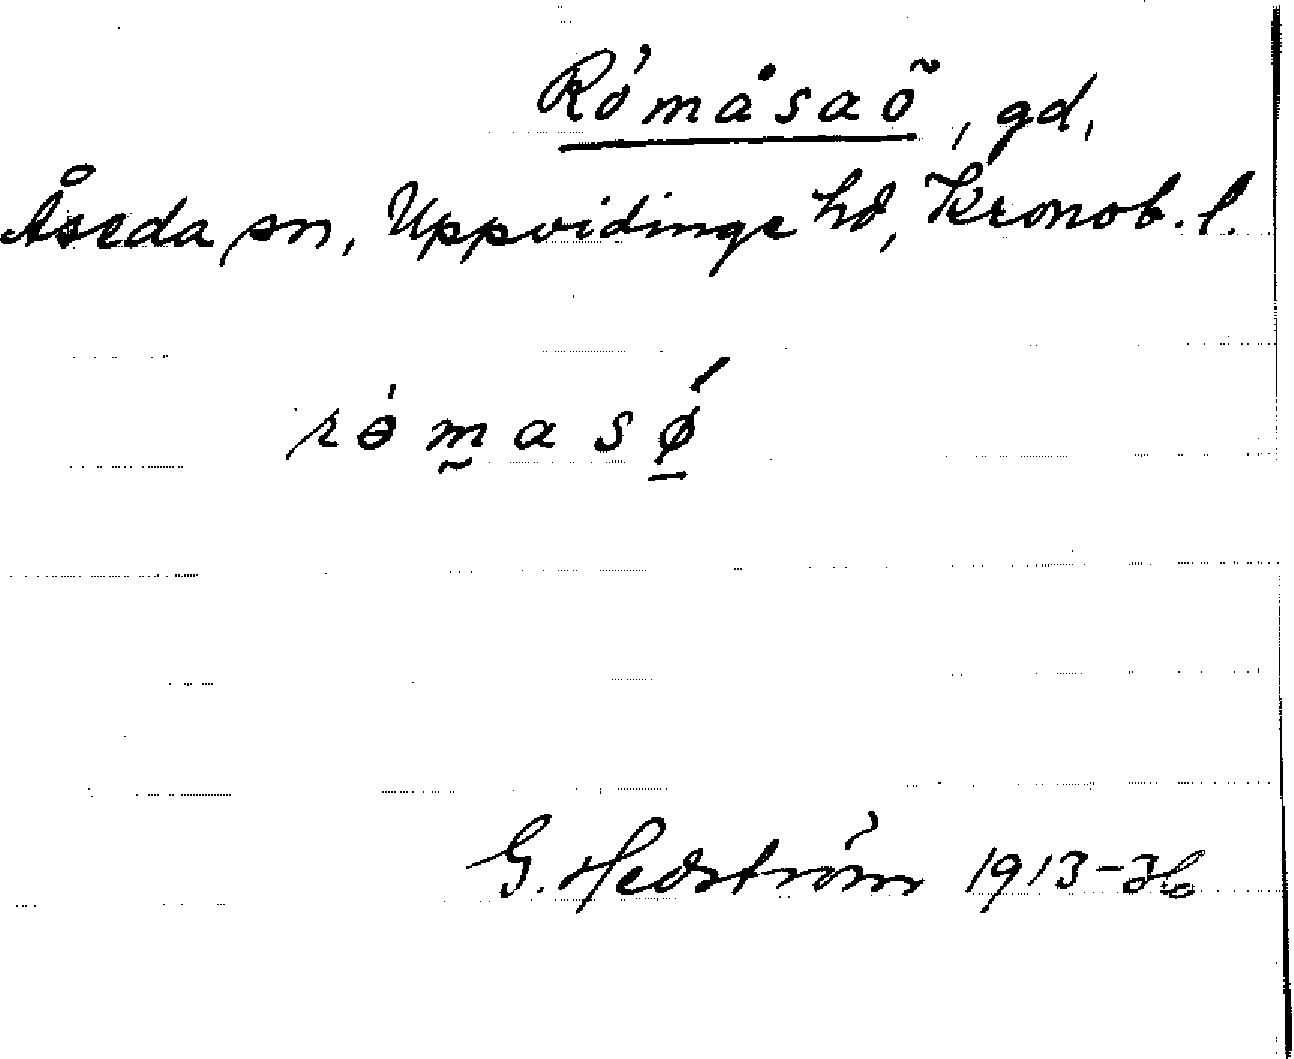 Römåsaö, gd,
Åseda sn, Uppvidinge hd, Kronob. l.
rɵmasø
G. Hedström 1913-36